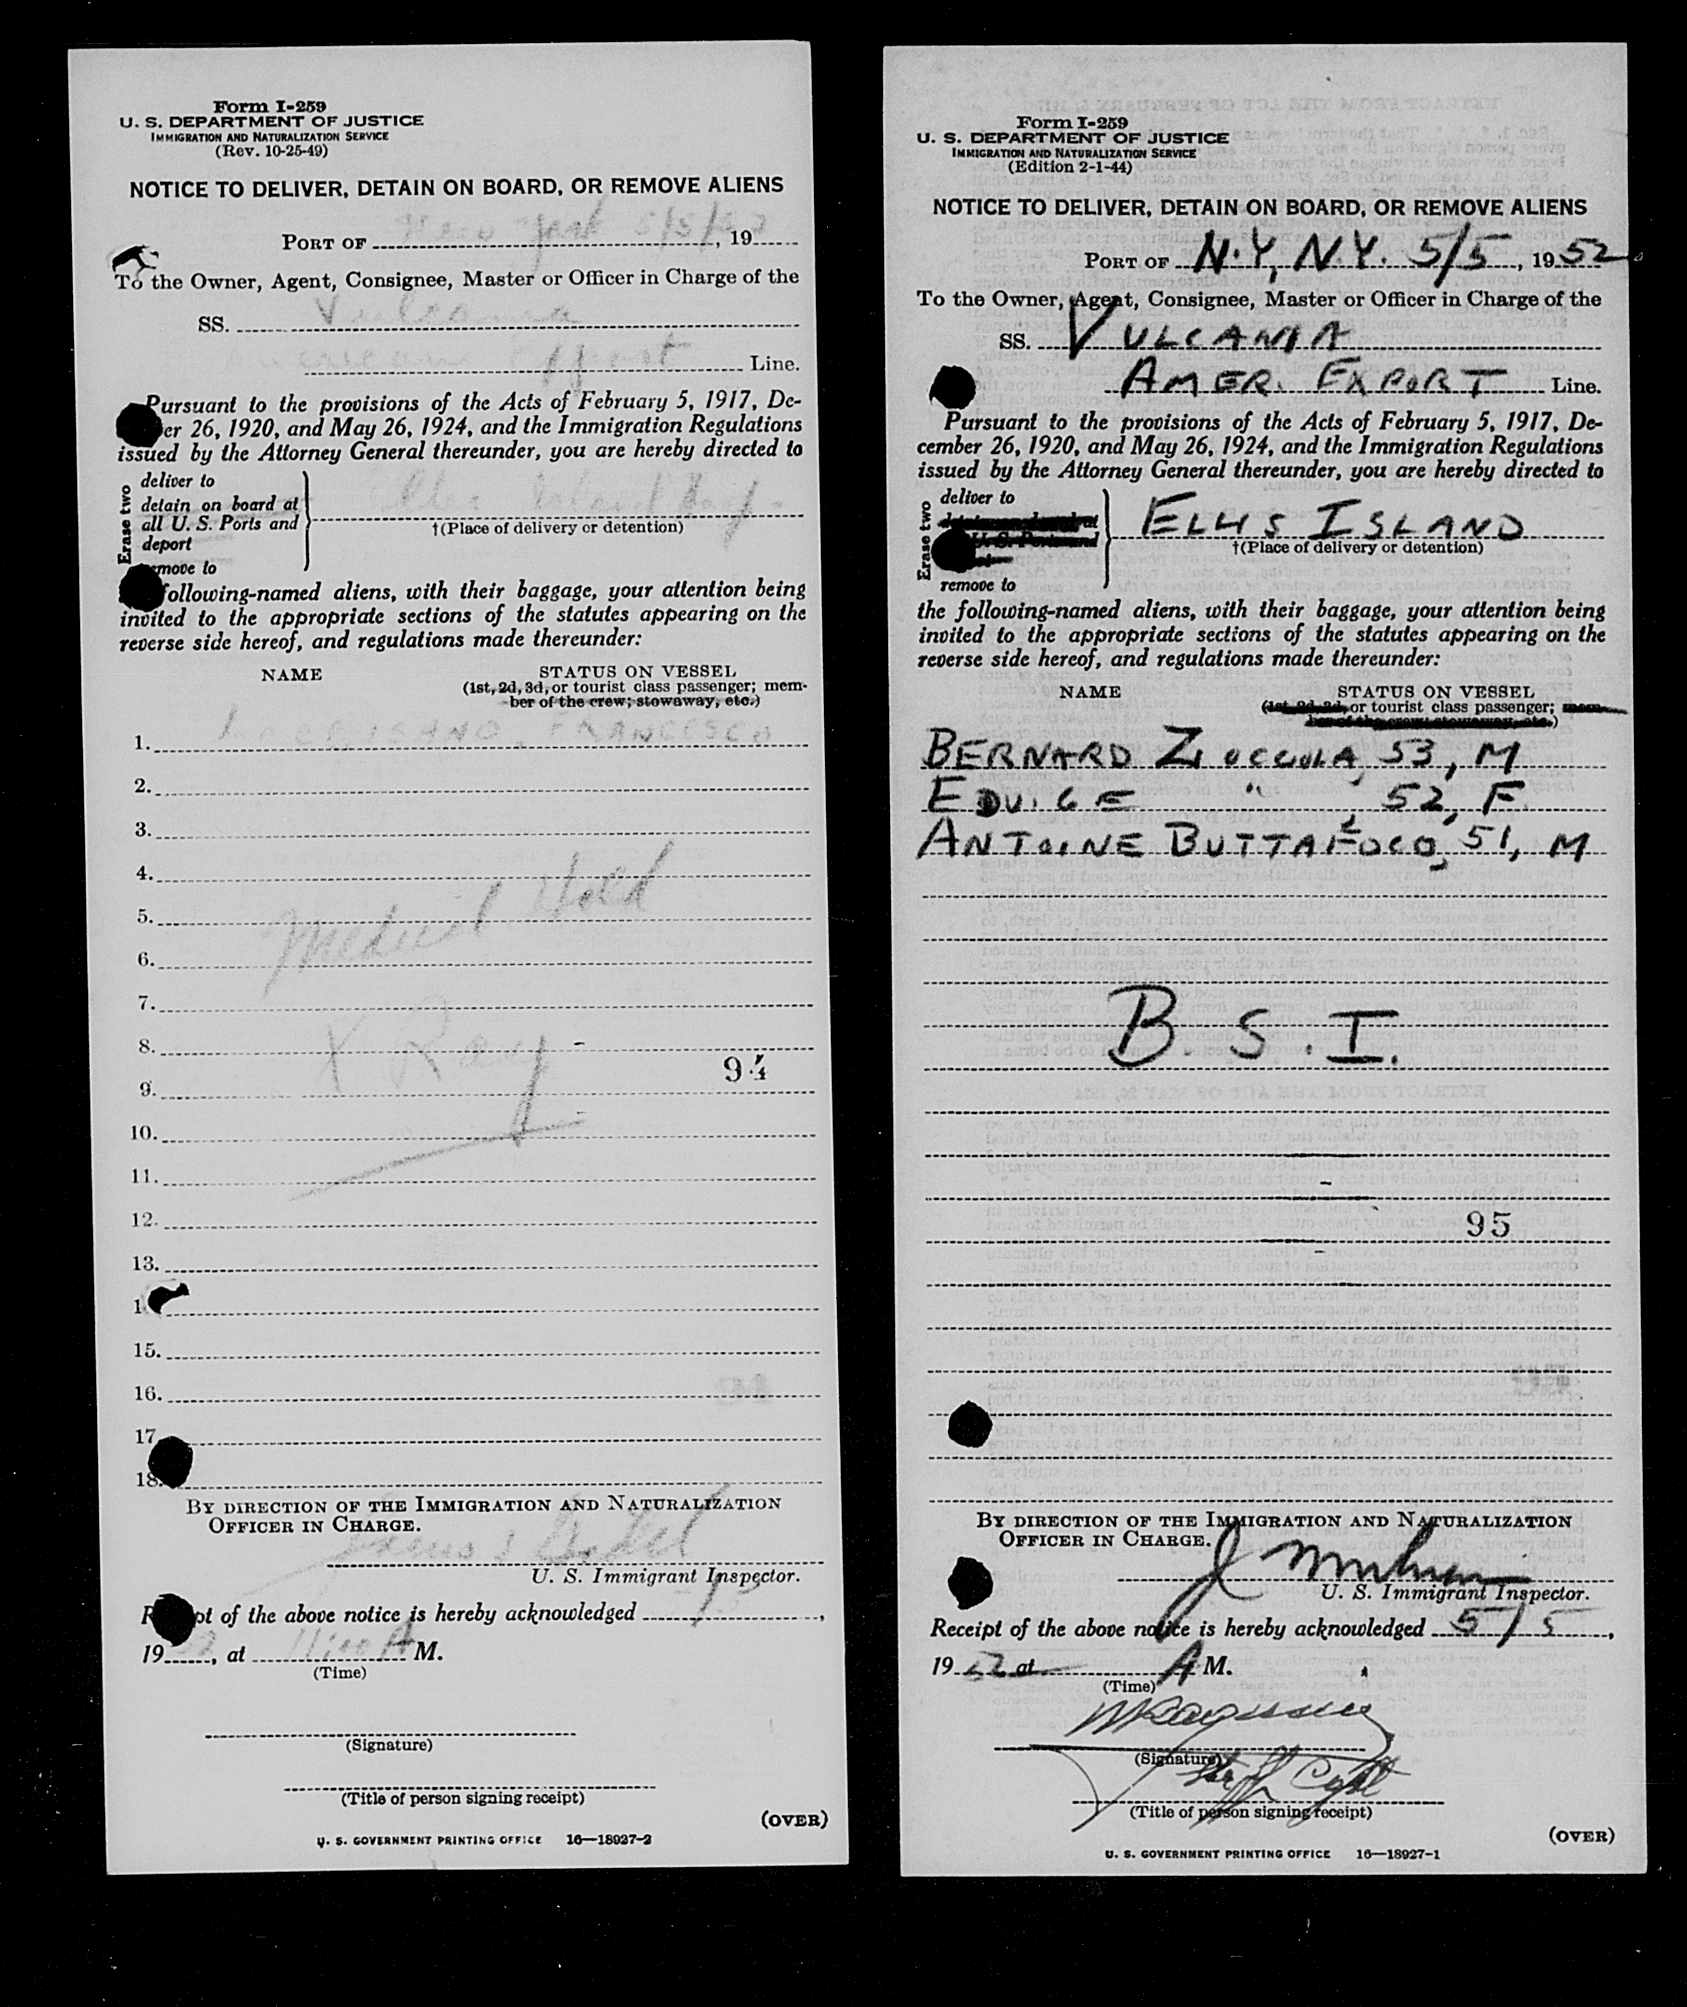 Form I-259
U. S. DEPARTMENT OF JUSTICE
IMMIGRATION AND NATURALIZATION SERVICE
(Rev. 10-25-49)
NOTICE TO DELIVER, DETAIN ON BOARD, OR REMOVE ALIENS
PORT OF New York 5/5/52, 19
To the Owner, Agent, Consignee, Master or Officer in Charge of the
SS. Vulcania
American Export Line.
Pursuant to the provisions of the Acts of February 5, 1917, De-
er 26, 1920, and May 26, 1924, and the Immigration Regulations
issued by the Attorney General thereunder, you are hereby directed to
Erase two
deliver to
detain on board at
all U. S. Ports and
deport
remove to
†(Place of delivery or detention)
following-named aliens, with their baggage, your attention being
invited to the appropriate sections of the statutes appearing on the
reverse side hereof, and regulations made thereunder:
NAME STATUS ON VESSEL
(1st, 2d, 3d, or tourist class passenger; mem-
ber of the crew; stowaway, etc.)
1. FRANCESCO
2.
3.
4.
5. Medical Hold
6.
7.
8. X Ray
94
9.
10.
11.
12.
13.
1
15.
16.
17
18.
BY DIRECTION OF THE IMMIGRATION AND NATURALIZATION
OFFICER IN CHARGE.
U. S. Immigrant Inspector.
Receipt of the above notice is hereby acknowledged ,
19 , at 11:00 A M.
(Time)
(Signature)
(Title of person signing receipt)
(OVER)
U. S. GOVERNMENT PRINTING OFFICE 16—18927-2
Form I-259
U. S. DEPARTMENT OF JUSTICE
IMMIGRATION AND NATURALIZATION SERVICE
(Edition 2-1-44)
NOTICE TO DELIVER, DETAIN ON BOARD, OR REMOVE ALIENS
PORT OF N.Y, N.Y. 5/5, 1952
To the Owner, Agent, Consignee, Master or Officer in Charge of the
SS. VULCANIA
AMER. EXPORT Line.
Pursuant to the provisions of the Acts of February 5, 1917, De-
cember 26, 1920, and May 26, 1924, and the Immigration Regulations
issued by the Attorney General thereunder, you are hereby directed to
Erase two
deliver to
remove to
ELLIS ISLAND
†(Place of delivery or detention)
the following-named aliens, with their baggage, your attention being
invited to the appropriate sections of the statutes appearing on the
reverse side hereof, and regulations made thereunder:
NAME STATUS ON VESSEL
or tourist class passenger;
BERNARD ZIOCCOLA, 53, M
EDVIGE " , 52, F.
ANTOINE BUTTAFOCO, 51, M
B. S. I.
95
BY DIRECTION OF THE IMMIGRATION AND NATURALIZATION
OFFICER IN CHARGE.
U. S. Immigrant Inspector.
Receipt of the above notice is hereby acknowledged 5/5,
19 52 at A M.
(Time)
(Signature)
(Title of person signing receipt)
(OVER)
U. S. GOVERNMENT PRINTING OFFICE 16—18927-1